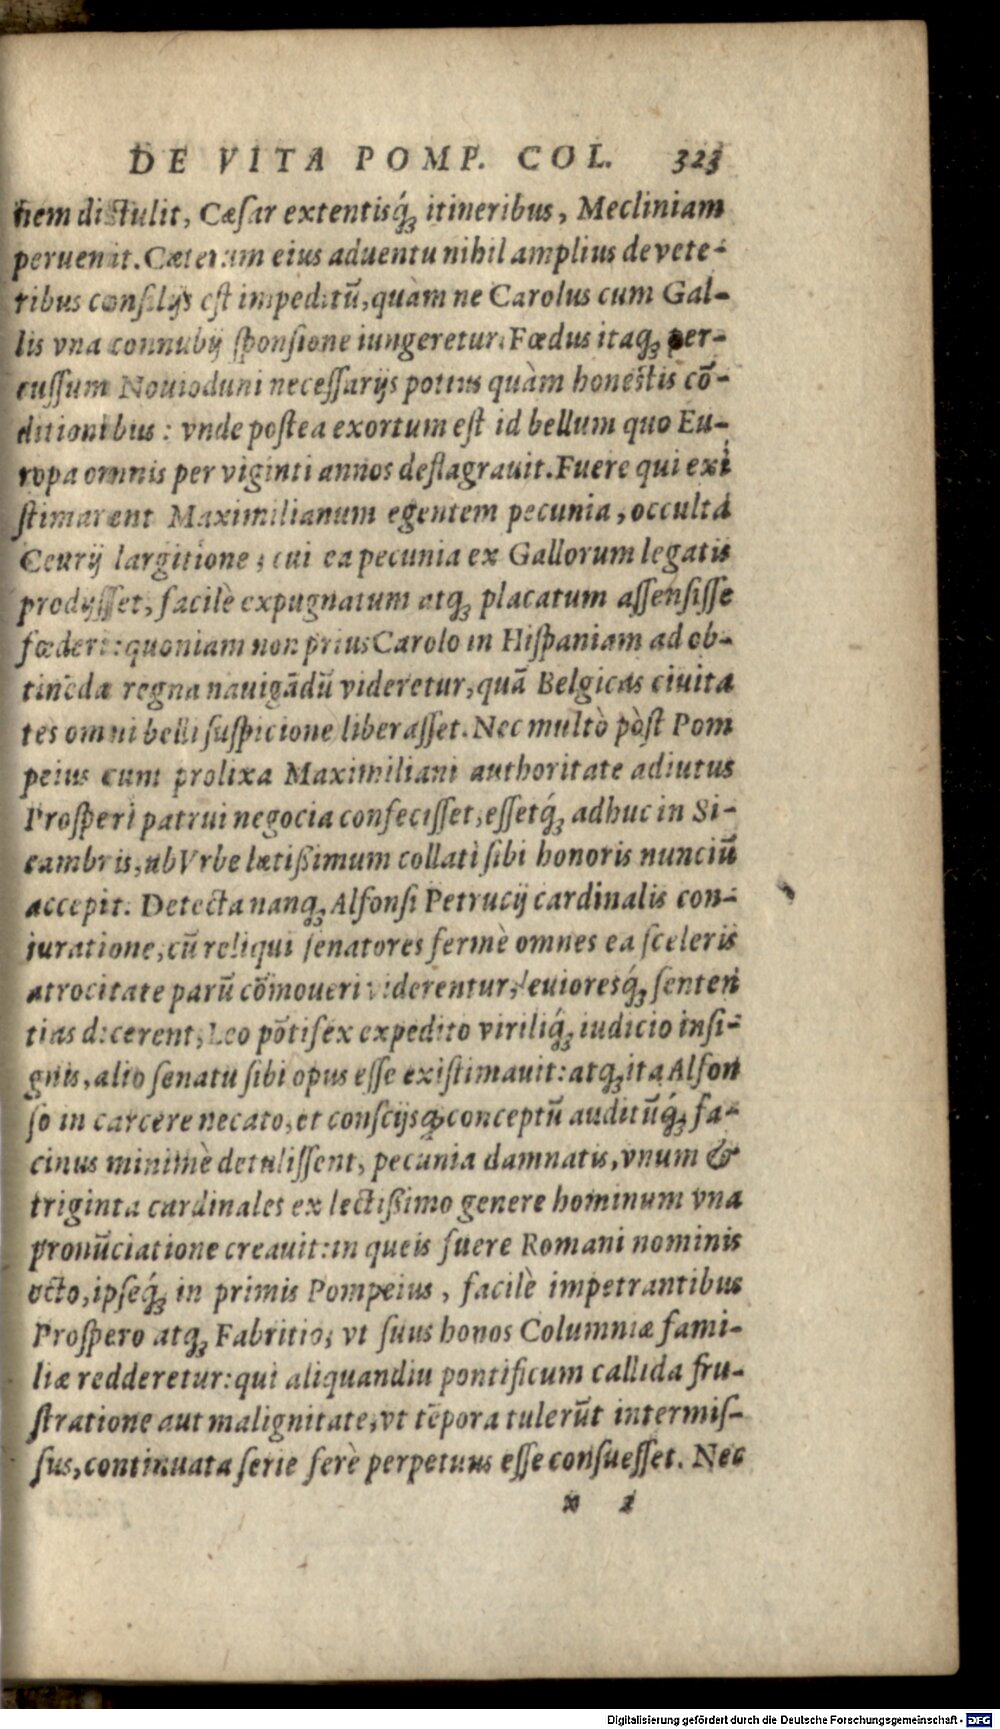 DE VITA POMP. COL. 323
nem distulit, Cæſar extentisq́ꝫ itineribus, Mecliniam
peruenit. Cæterum eius aduentu nihil amplius de vete-
ribus conſilijs eſt impeditū, quàm ne Carolus cum Gal-
lis vna connubij ſponſione iungeretur. Fœdus itaqꝫ per-
cuſſum Nouioduni neceſſarijs potius quàm honeſtis cō-
ditionibus: vnde poſtea exortum eſt id bellum quo Eu-
ropa omnis per viginti annos deflagrauit. Fuere qui exi
ſtimarent Maximilianum egentem pecunia, occulta
Ceurij largitione, cui ea pecunia ex Gallorum legatis
prodijſſet, facilè expugnatum atqꝫ placatum aſſenſiſſe
fœderi: quoniam non prius Carolo in Hiſpaniam ad ob-
tinēda regna nauigādū videretur, quā Belgicas ciuita
tes omni belli ſuſpicione liberaſſet. Nec multò pòſt Pom
peius cum prolixa Maximiliani authoritate adiutus
Proſperi patrui negocia confeciſſet, eſſetq́ꝫ adhuc in Si-
cambris, ab Vrbe lætißimum collati ſibi honoris nunciū
accepit. Detecta nanqꝫ Alfonſi Petrucij cardinalis con-
iuratione, cū reliqui ſenatores fermè omnes ea ſceleris
atrocitate parū cōmoueri viderentur, leuioresq́ꝫ ſenten
tias dicerent, Leo pōtifex expedito viriliq́ꝫ iudicio inſi-
gnis, alio ſenatu ſibi opus eſſe exiſtimauit: atqꝫ ita Alfon
ſo in carcere necato, et conſcijsqꝫ conceptū auditūq́ꝫ fa-
cinus minimè detuliſſent, pecunia damnatis, vnum &
triginta cardinales ex lectißimo genere hominum vna
pronūciatione creauit: in queis fuere Romani nominis
octo, ipſeq́ꝫ in primis Pompeius, facilè impetrantibus
Proſpero atqꝫ Fabritio, vt ſuus honos Columniæ fami-
liæ redderetur: qui aliquandiu pontificum callida fru-
ſtratione aut malignitate, vt tēpora tulerūt intermiſ-
ſus, continuata ſerie ferè perpetuus eſſe conſueſſet. Nec
x 2
Digitalisierung gefördert durch die Deutsche Forschungsgemeinschaft - DFG